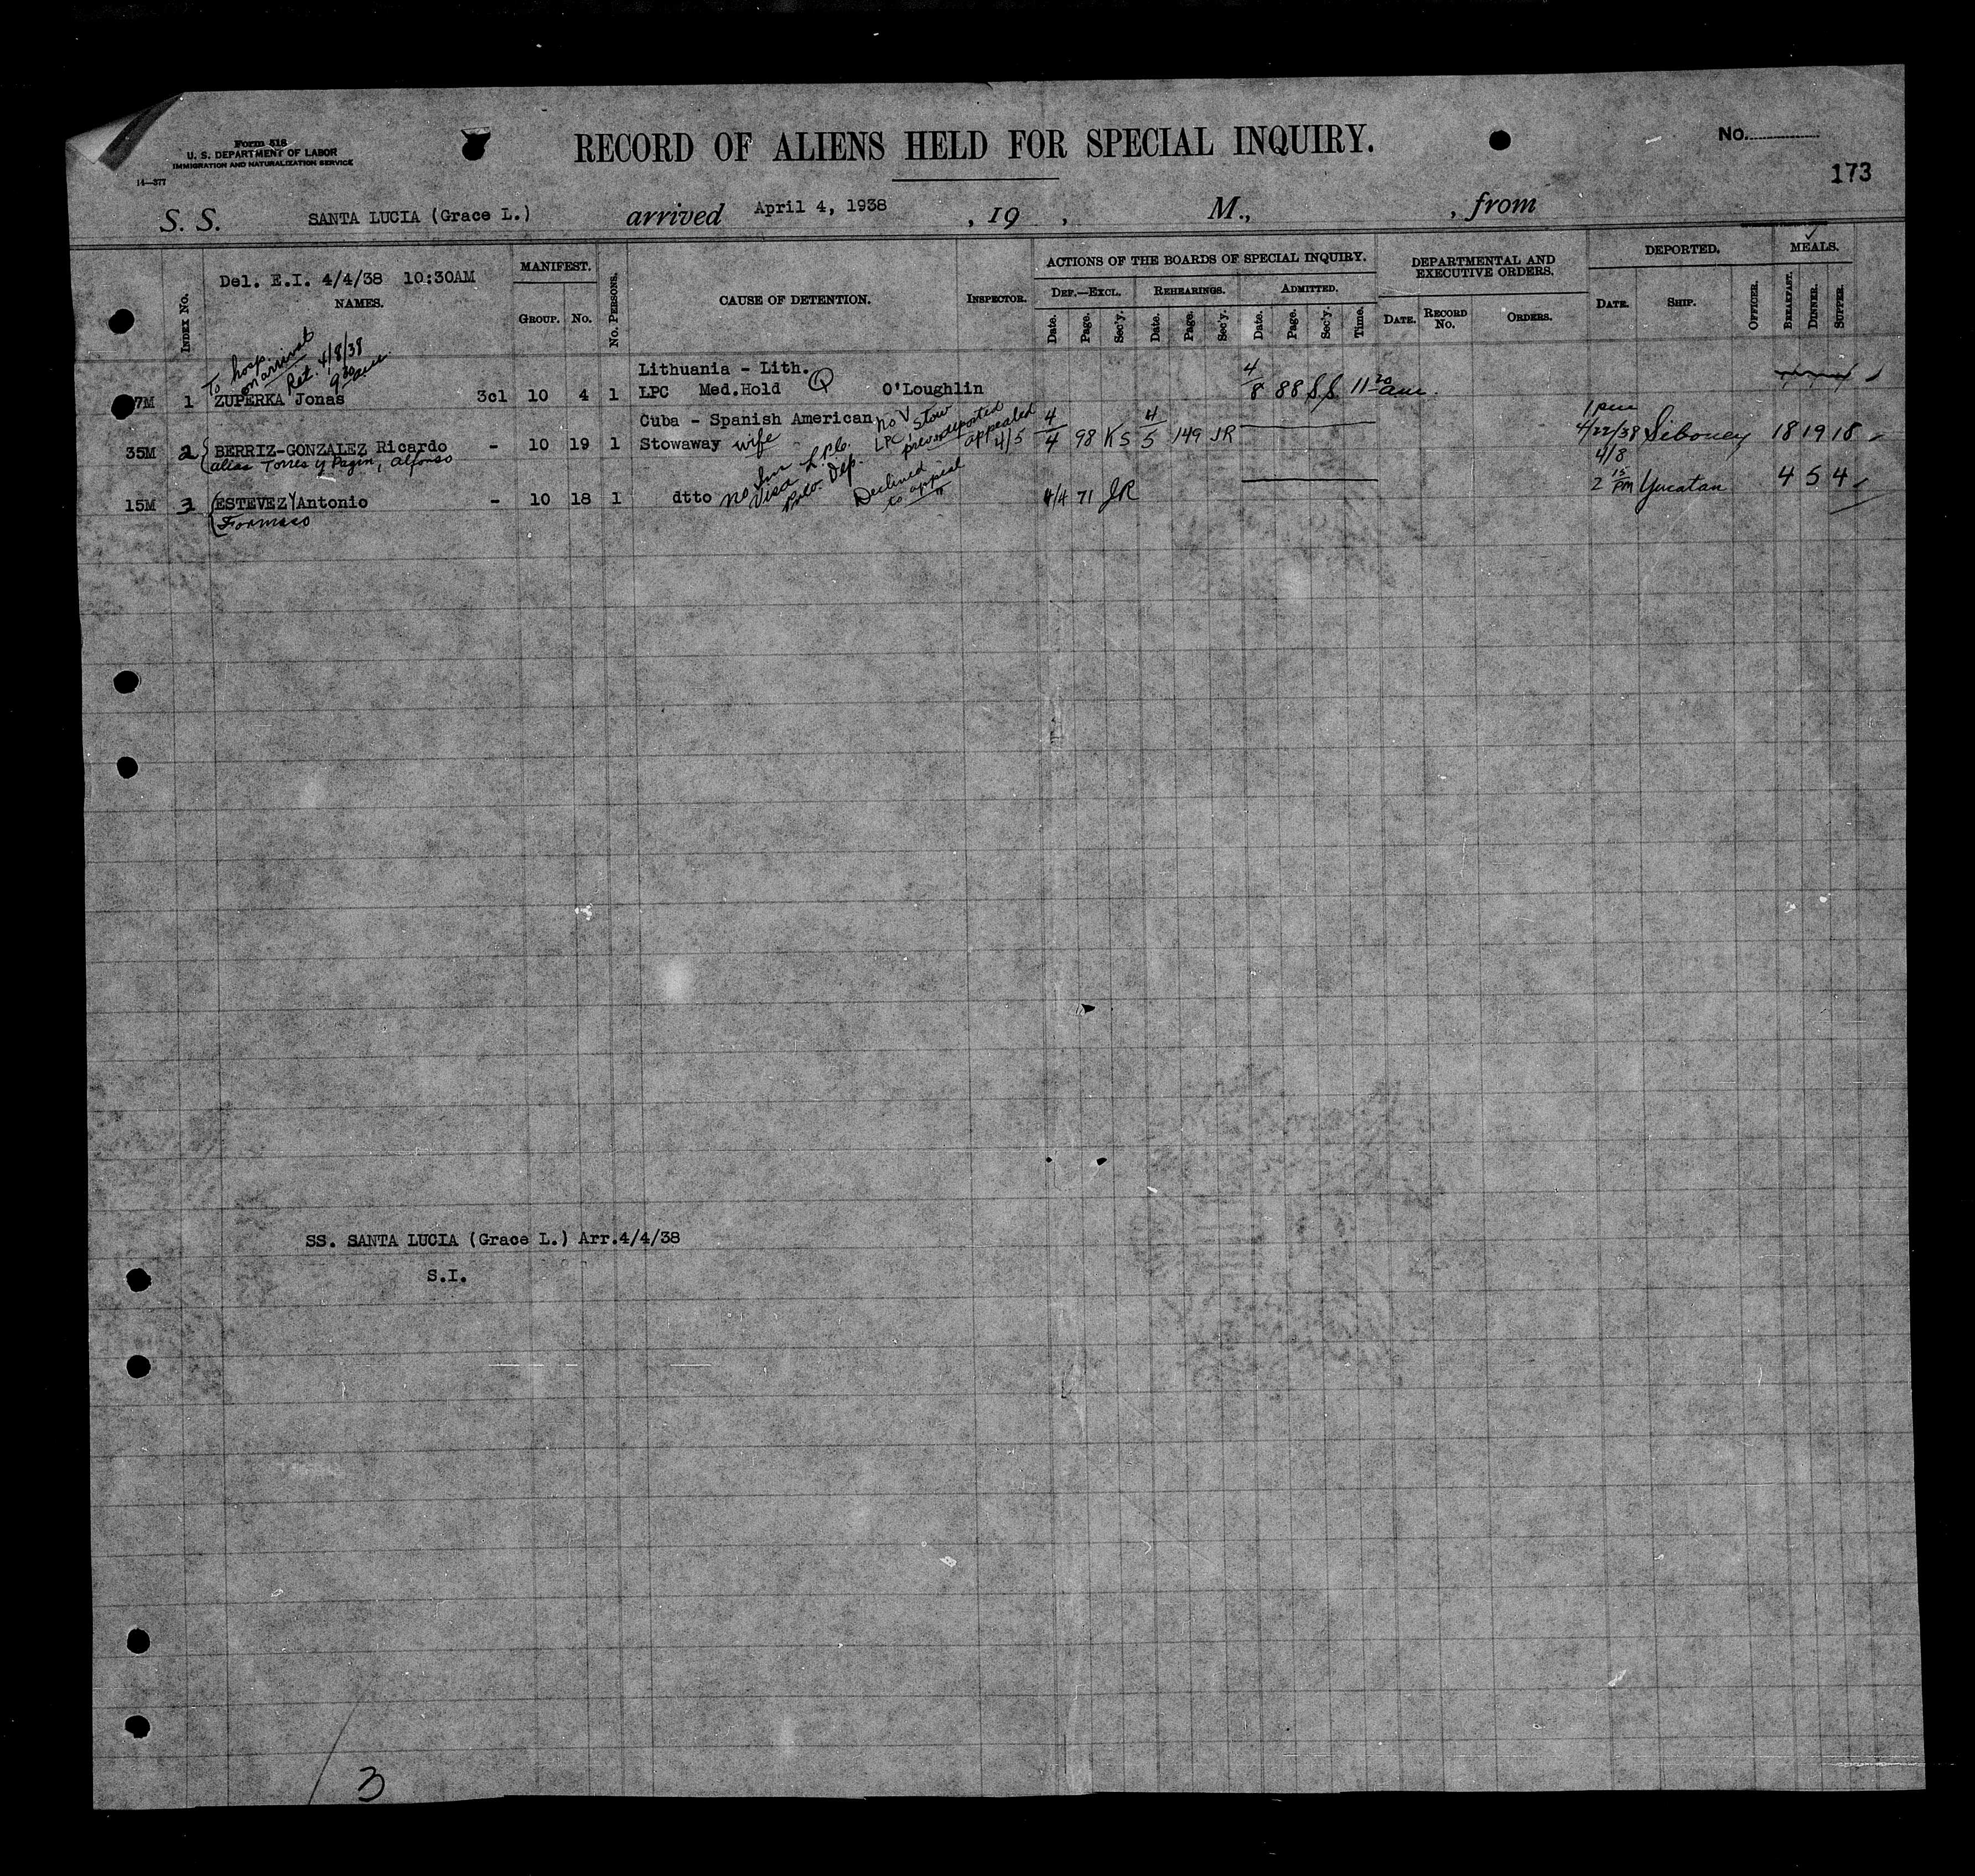 Form 518
U. S. DEPARTMENT OF LABOR
IMMIGRATION AND NATURALIZATION SERVICE
14—377
RECORD OF ALIENS HELD FOR SPECIAL INQUIRY.
No.
173
S. S. SANTA LUCIA (Grace L.) arrived April 4, 1938 , 19 , M., , from
Del. E.I. 4/4/38 10:30AM
INDEX No.
NAMES.
MANIFEST.
GROUP. No.
No. PERSONS.
CAUSE OF DETENTION.
INSPECTOR.
ACTIONS OF THE BOARDS OF SPECIAL INQUIRY.
DEF.—EXCL. REHEARINGS. ADMITTED.
Date. Page. Sec'y. Date. Page. Sec'y. Date. Page. Sec'y. Time.
DEPARTMENTAL AND
EXECUTIVE ORDERS.
DATE. RECORD No. ORDERS.
DEPORTED.
DATE. SHIP. OFFICER.
MEALS.
BREAKFAST. DINNER. SUPPER.
To hosp.
on arrival
Ret. 4/8/38
9 30 am
Lithuania - Lith.
7M 1 ZUPERKA Jonas 3cl 10 4 1 LPC Med.Hold O'Loughlin 4/8 88 SS 11 20 am.
Cuba - Spanish American no V. Stow
LPC prev. deported
appealed
4/5
1 pm
35M 2 BERRIZ-GONZALEZ Ricardo - 10 19 1 Stowaway wife 4/4 98 KS 4/5 149 JR 4/22/38 Siboney 18 19 18
alias Torres y Pagin, Alfonso
no Im
Visa L.P.C.
Prev. Dep.
Declined
to appeal
4/8
15M 3 ESTEVEZ Y Antonio - 10 18 1 dtto 4/4 71 JR 2 15 PM Yucatan 4 5 4
Formoso
SS. SANTA LUCIA (Grace L.) Arr.4/4/38
S.I.
3